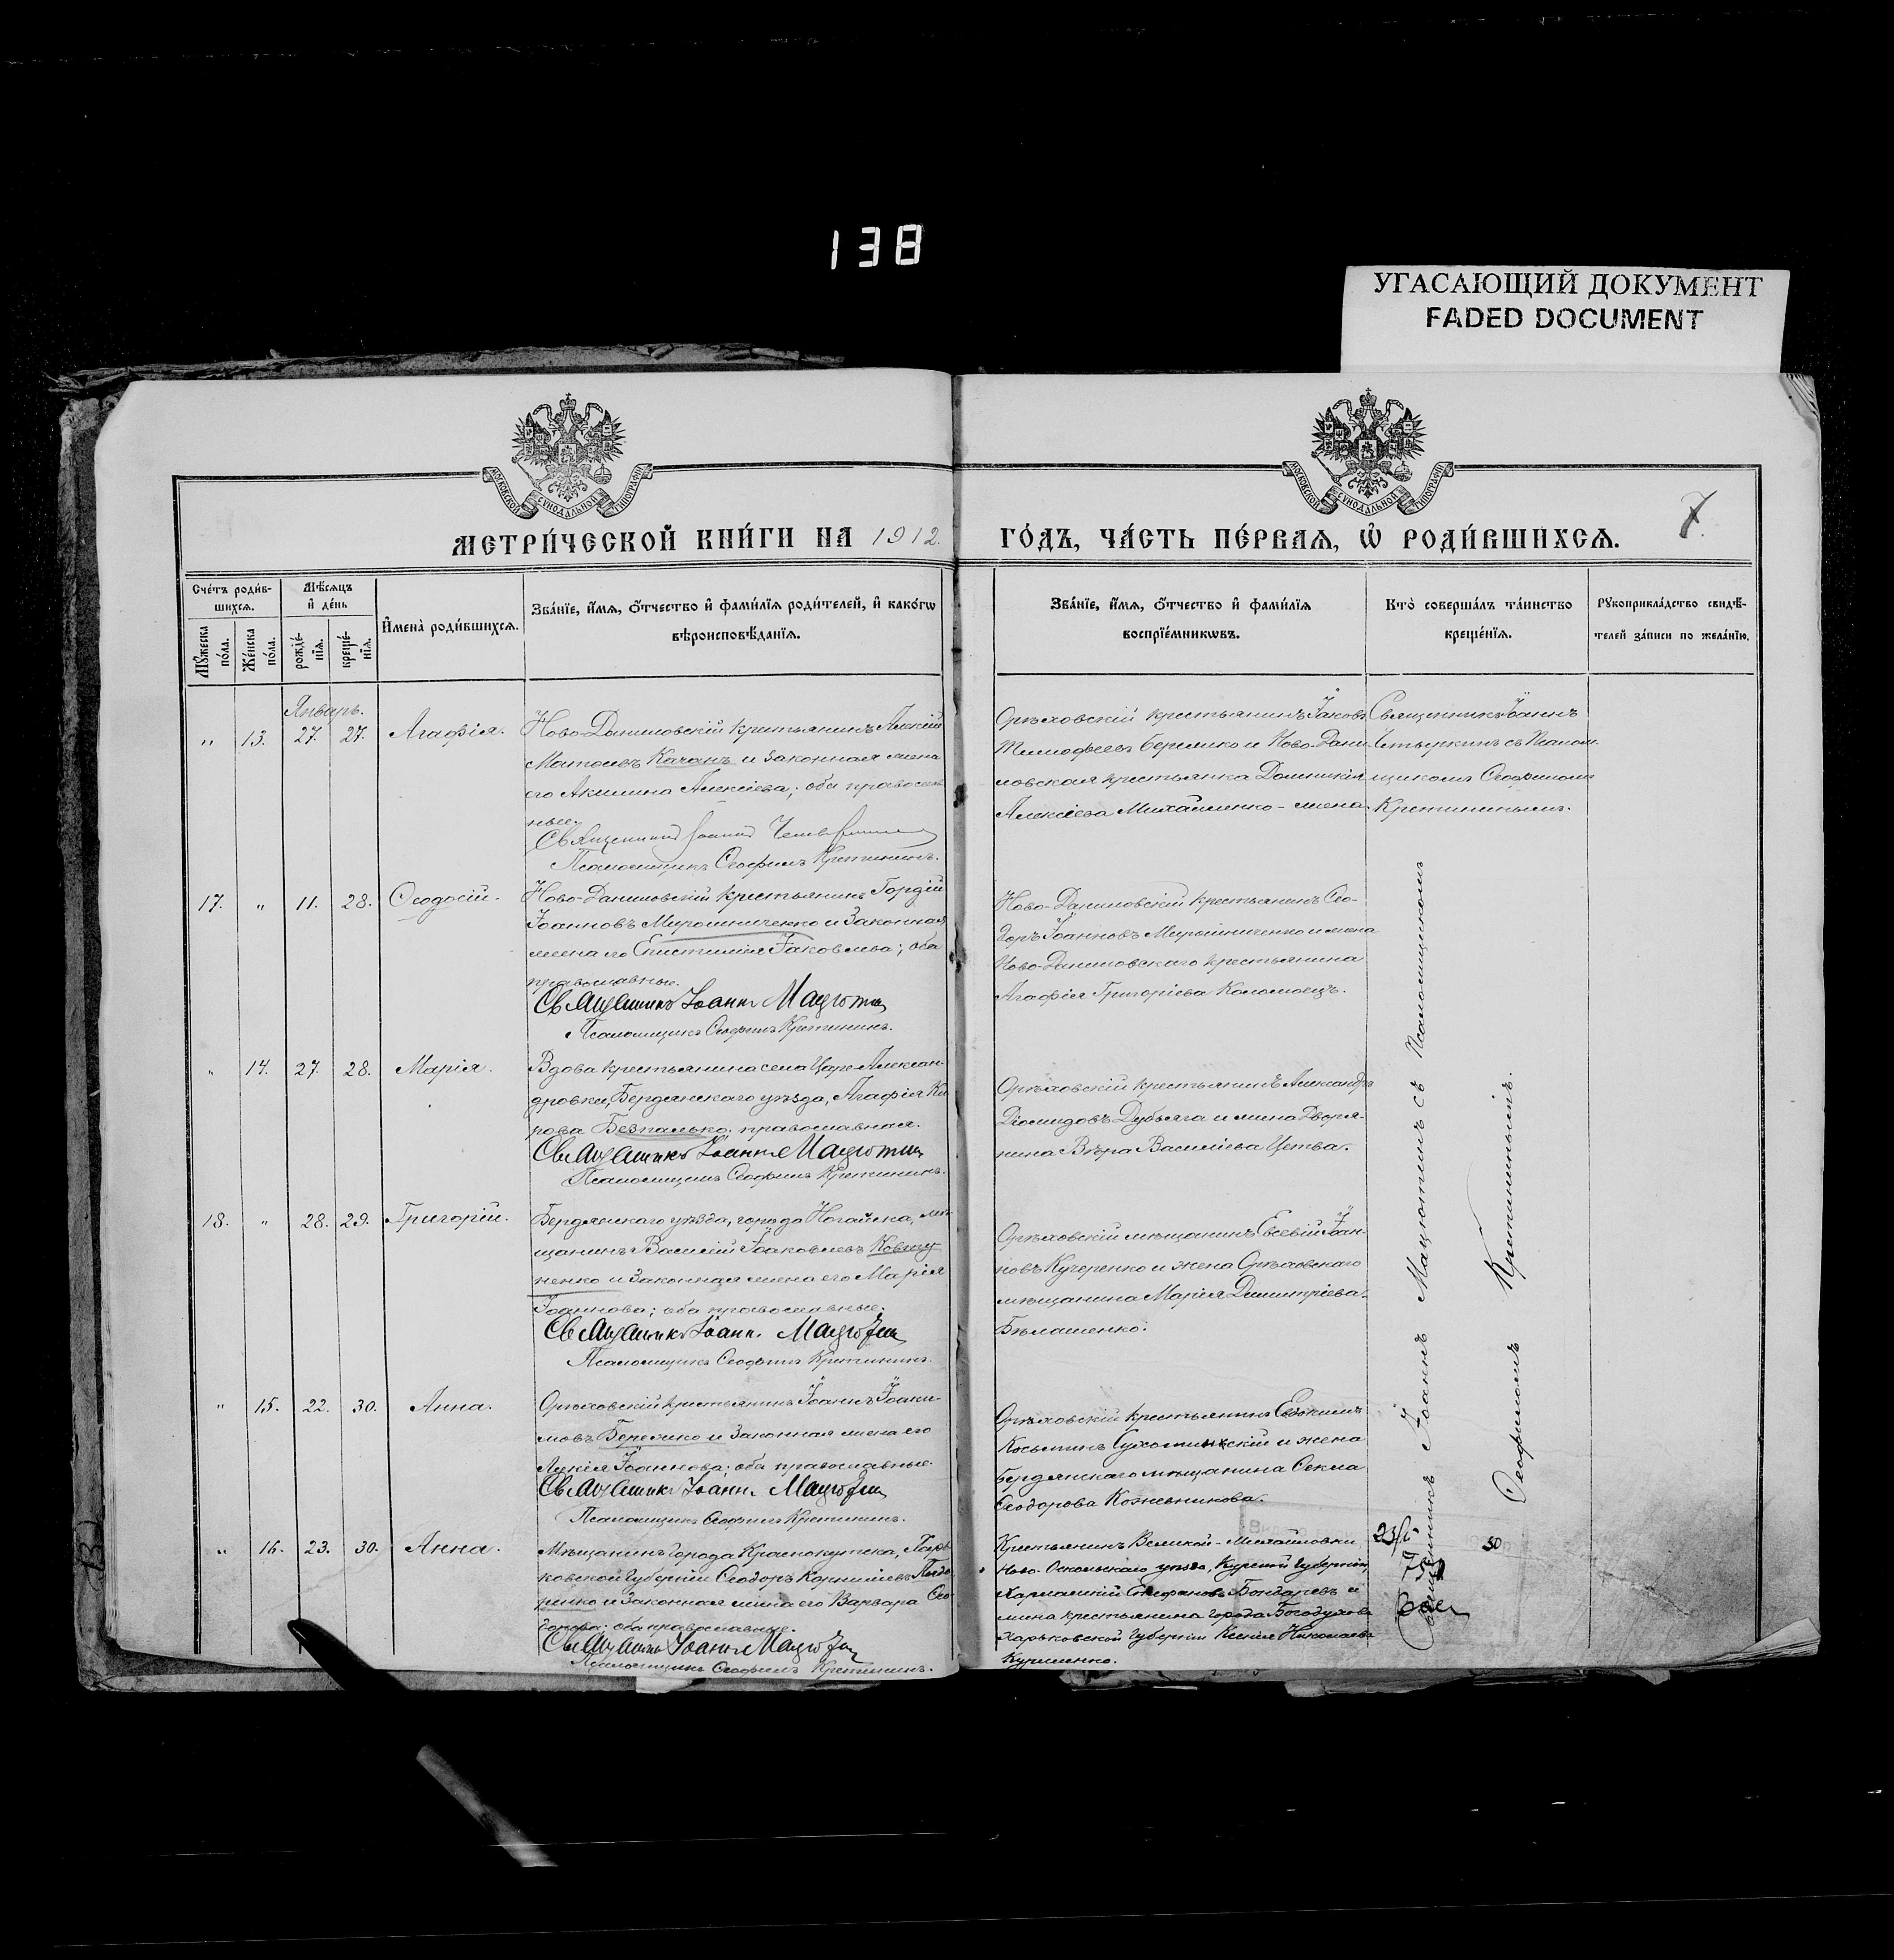 138
УГАСАЮЩИЙ ДОКУМЕНТ
FADED DOCUMENT
МОСКОВСКОЙ СѴНОДАЛЬНОЙ ТИПОГРАФІИ
МОСКОВСКОЙ СѴНОДАЛЬНОЙ ТИПОГРАФІИ
МЕТРИ́ЧЕСКОЙ КНИ́ГИ НА 1912.
ГО́ДЪ, ЧА́СТЬ ПЕ́РВАѦ, Ѡ҆ РОДИ́ВШИХСѦ.
7.
Сче́тъ роди́в-
шихсѧ.
Мꙋ́жеска по́ла.
Же́нска по́ла.
Мѣ́сѧцъ
и҆ де́нь
рожде́-
нїѧ.
креще́-
нїѧ.
И҆мена̀ роди́вшихсѧ.
Зва́нїе, и҆́мѧ, ѻ҆́тчество и҆ фами́лїѧ роди́телей, и҆ како́гѡ
вѣроисповѣ́данїѧ.
Зва́нїе, и҆́мѧ, ѻ҆́тчество и҆ фами́лїѧ
воспрїе́мникѡвъ.
Кто̀ соверша́лъ та́инство
креще́нїѧ.
Рꙋкоприкла́дство свидѣ́-
телей за́писи по жела́нїю.
Январь.
" 13. 27. 27. Агафія.
Ново-Даниловскій крестьянинъ Алексій
Матѳевъ Качанъ и законная жена
его Акилина Алексіева; оба православ-
ные.
Священникъ Іоаннъ
Псаломщикъ Ѳеофилъ Кретининъ.
Орѣховскій крестьянинъ Іаковъ
Тимофеевъ Бережко и Ново-Дани-
ловская крестьянка Домникія
Алексіева Михайленко - жена.
Священникъ Іоаннъ
Четыркинъ съ Псалом-
щикомъ Ѳеофиломъ
Кретининымъ.
17. " 11. 28. Ѳеодосій.
Ново-Даниловскій крестьянинъ Гордій
Іоанновъ Мирошниченко и законная
жена его Епистимія Іаковлева; оба
православные.
Священникъ Іоаннъ Мацютинъ
Псаломщикъ Ѳеофилъ Кретининъ.
Ново-Даниловскій крестьянинъ Ѳео-
доръ Іоанновъ Мирошниченко и жена
Ново-Даниловскаго крестьянина
Агафія Григоріева Коломоецъ.
" 14. 27. 28. Марія.
Вдова крестьянина села Царе-Алексан-
дровки, Бердянскаго уѣзда, Агафія Ки-
рова Безпалько, православная.
Священникъ Іоаннъ Мацютинъ
Псаломщикъ Ѳеофилъ Кретининъ.
Орѣховскій крестьянинъ Александръ
Діомидовъ Дубьяга и жена Дворя-
нина Вѣра Василіева Цетва.
18. " 28. 29. Григорій.
Бердянскаго уѣзда, города Ногайска, мѣ-
щанинъ Василій Іаковлевъ Ковту-
ненко и законная жена его Марія
Іоаннова; оба православные.
Священникъ Іоаннъ Мацютинъ
Псаломщикъ Ѳеофилъ Кретининъ.
Орѣховскій мѣщанинъ Евсевій Іоан-
новъ Кучеренко и жена Орѣховскаго
мѣщанина Марія Димитріева
Бѣлашенко.
" 15. 22. 30. Анна.
Орѣховскій крестьянинъ Іоаннъ Іоаки-
мовъ Бережко и законная жена его
Лукія Іоаннова; оба православные.
Священникъ Іоаннъ Мацютинъ
Псаломщикъ Ѳеофилъ Кретининъ.
Орѣховскій крестьянинъ Евдокимъ
Косьминъ Сухомлинскій и жена
Бердянскаго мѣщанина Ѳекла
Ѳеодорова Кожевникова.
" 16. 23. 30. Анна.
Мѣщанинъ города Краснокутска, Харь-
ковской губерніи Ѳеодоръ Корниліевъ
и законная жена его Варвара Ѳео-
дорова; оба православные.
Священникъ Іоаннъ Мацютинъ
Псаломщикъ Ѳеофилъ Кретининъ.
Крестьянинъ Великой-Михайловки
Ново-Оскольскаго уѣзда, Курской губерніи,
Харлампій Стефановъ Бондаревъ и
жена крестьянина города Богодухова
Харьковской губерніи Ксенія Николаева
Куриленко.
Священникъ Іоаннъ Мацютинъ съ Псаломщикомъ
Ѳеофиломъ Кретининымъ.